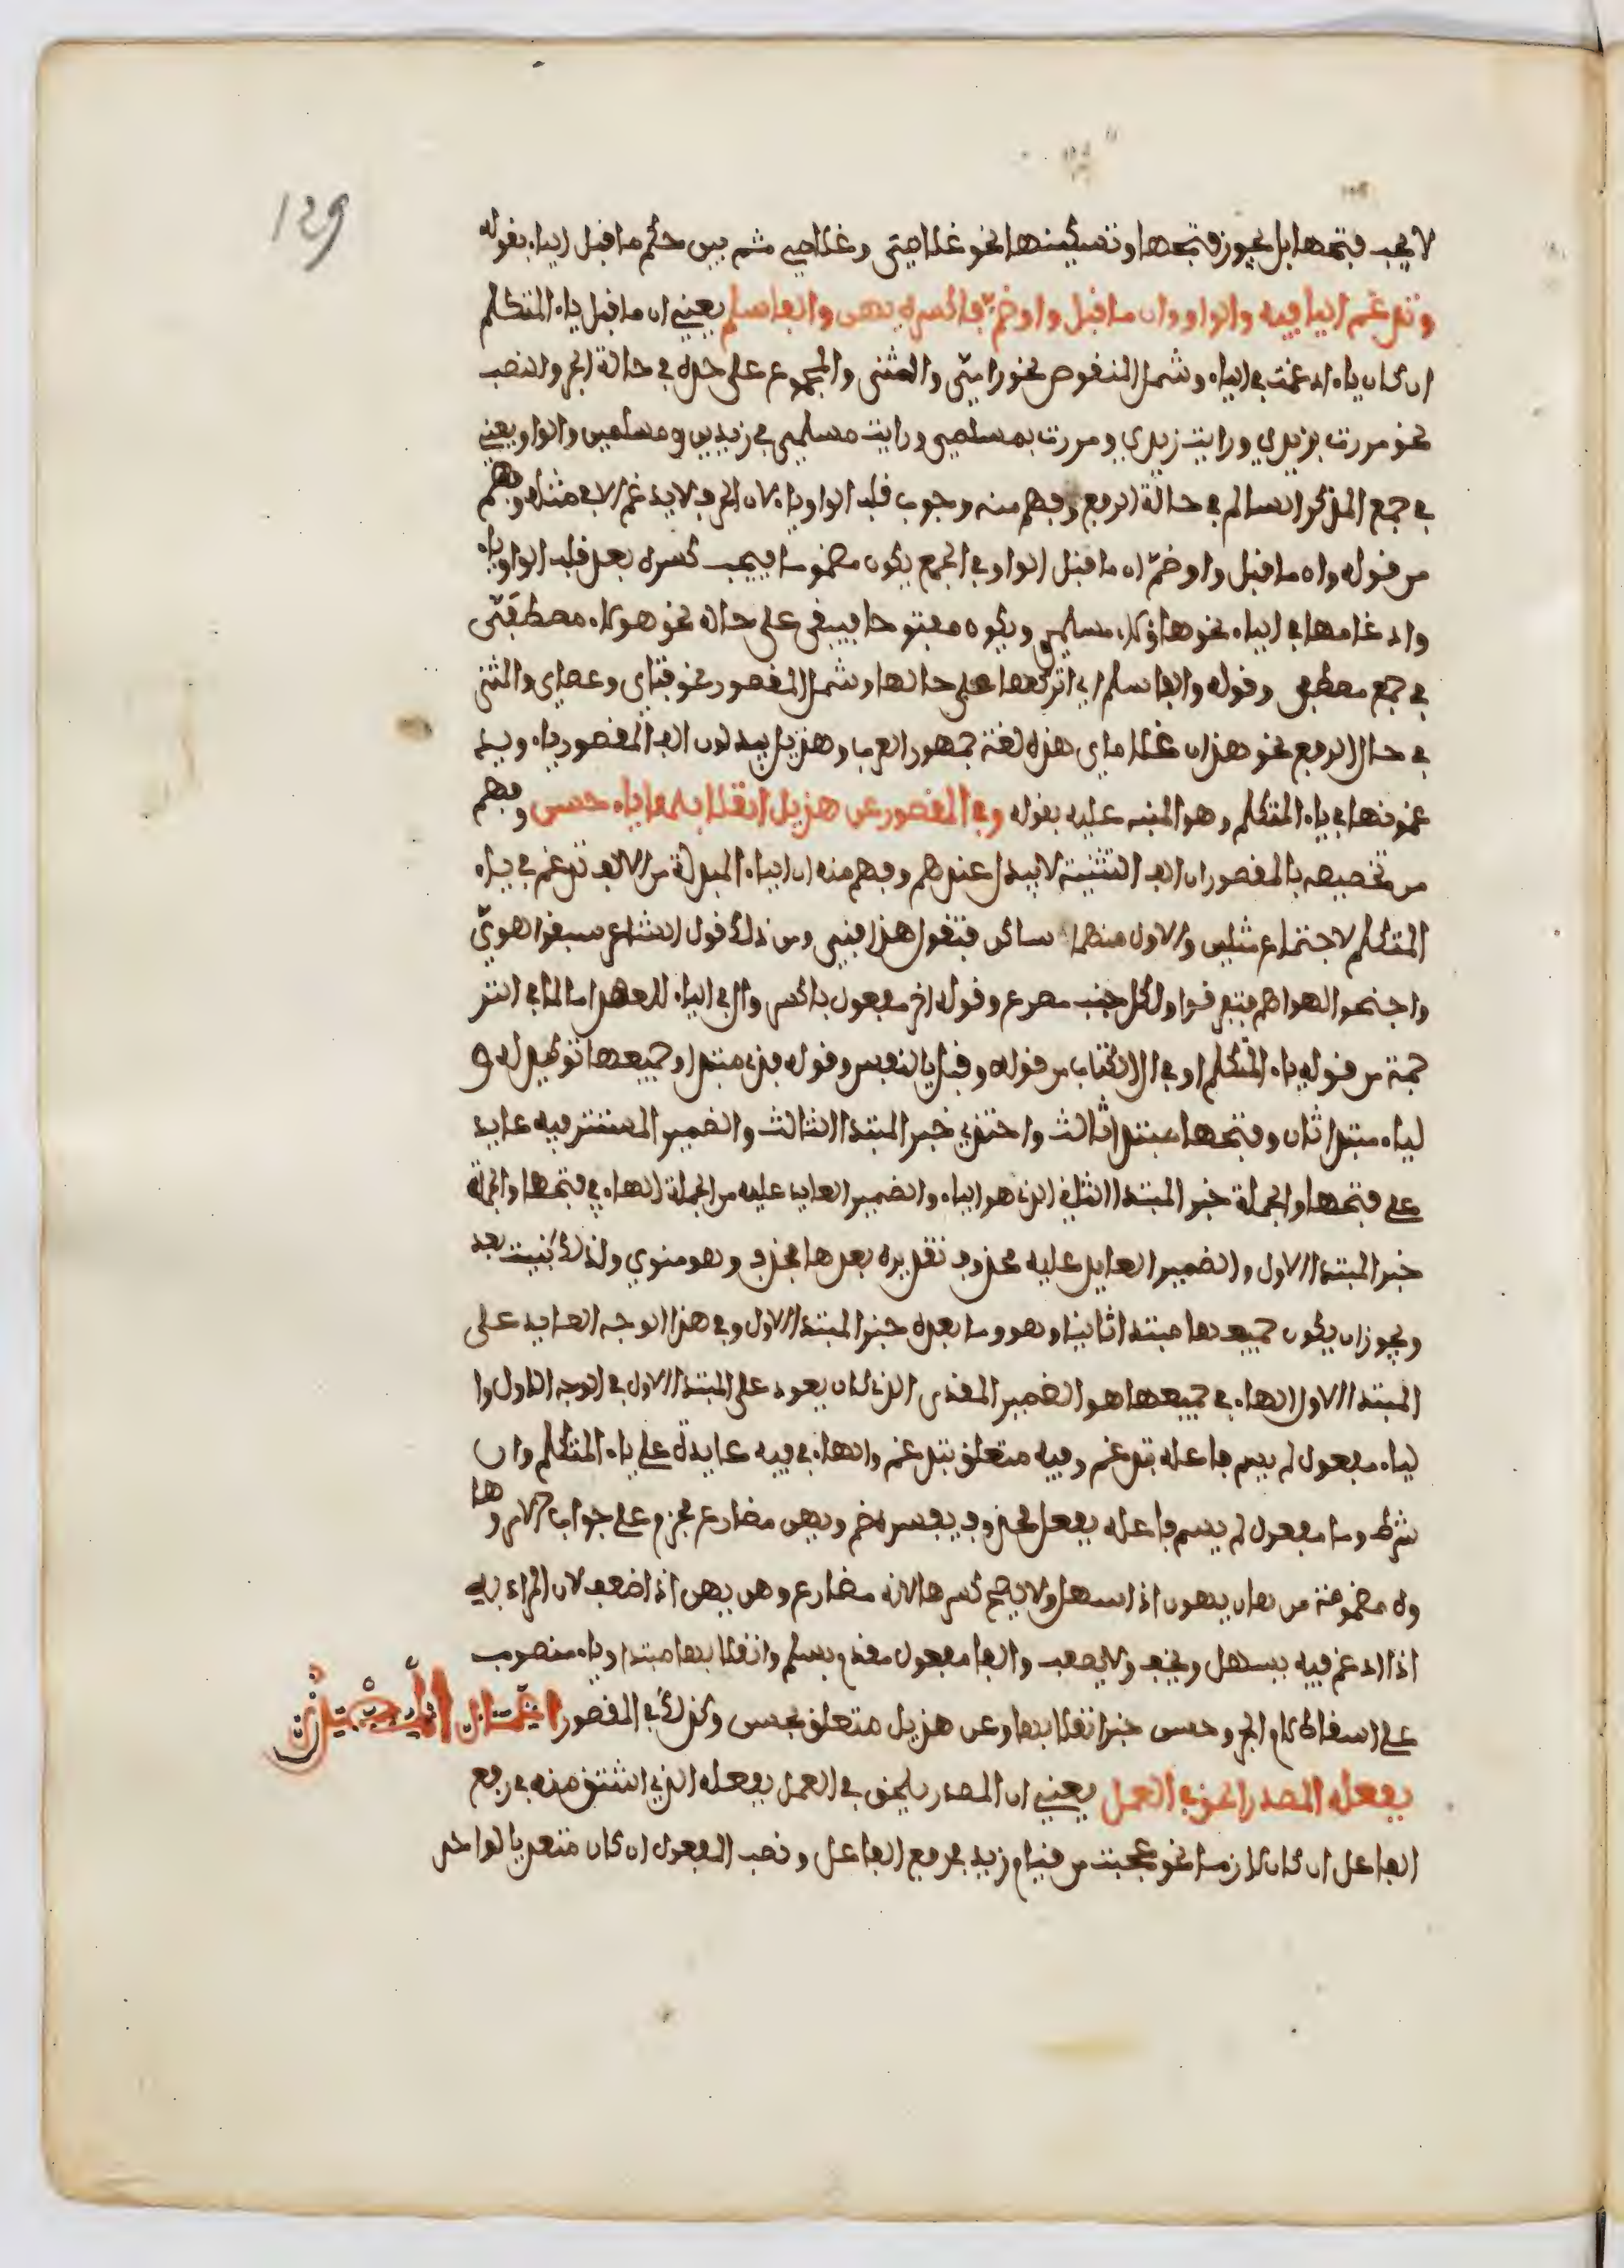 129
لا يجب فتحها بل يجوز فتحها وتسكينها نحو غلامي وغلامي ثم بين حكم ما قبل الياء بقوله
وتدغم اليا فيه والواو وان ما قبل واو ضم فاكسره يهن والفا سلم يعني ان ما قبل ياء المتكلم
ان كان ياء ادغمت في الياء وشمل المنقوص نحو رامي والمثنى والمجموع على حده في حالة الجر والنصب
نحو مررت بزيدي ورايت زيدي ومررت بمسلمي ورايت مسلمي في زيدين ومسلمين والواو يعني
في جمع المذكر السالم في حالة الرفع وفهم منه وجوب قلب الواو ياء لان الحرف لا يدغم الا في مثله وفهم
من قوله وان ما قبل واو ضم ان ما قبل الواو في الجمع يكون مضموما فيجب كسره بعد قلب الواو ياء
وادغامها في الياء نحو هاؤلاء مسلمي ويكون مفتوحا فيبقى على حاله نحو هولاء مصطفي
في جمع مصطفى وقوله والفا سلم اي اتركها على حالها وشمل المقصور نحو فتاي وعصاي والمثنى
في حال الرفع نحو هذان غلاماي هذه لغة جمهور العرب وهذيل يبدلون الف المقصور ياء ويد
غمونها في ياء المتكلم وهو المنبه عليه بقوله وفي المقصور عن هذيل انقلابها ياء حسن وفهم
من تخصيصه بالمقصور ان الف التثنية لا تبدل عندهم وفهم منه ان الياء المبدلة من الالف تدغم في ياء
المتكلم لاجتماع مثلين والاول منهما ساكن فتقول هذا فتي ومن ذلك قول الشاعر سبقوا هوي
واعنقوا لهواهم فتخرموا ولكل جنب مصرع وقوله اخر مفعول باكسر وال في الياء للعهد اما لما في التر
جمة من قوله ياء المتكلم او في الكتاب من قوله وقبل يا النفس وقوله فذي مبتدا وجميعها توكيد له و
لياء مبتدا ثان وفتحها مبتدا ثالث واحتذي خبر المبتدا الثالث والضمير المستتر فيه عايد
على فتحها والجملة خبر المبتدا الثاني الذي هو الياء والضمير العايد عليه من الجملة الهاء في فتحها والجملة
خبر المبتدا الاول والضمير العايد عليه محذوف تقديره بعدها فحذف وهو منوي ولذلك بنيت بعد
ويجوز ان يكون جميعها مبتدا ثانيا وهو وما بعده خبر المبتدا الاول وفي هذا الوجه العايد على
المبتدا الاول الهاء في جميعها هو الضمير المقدر الذي كان يعود على المبتدا الاول في الوجه الاول وا
لياء مفعول لم يسم فاعله بتدغم وفيه متعلق بتدغم والهاء في فيه عايدة على ياء المتكلم وان
شرط وما مفعول لم يسم فاعله بفعل محذوف يفسره ضم ويهن مضارع مجزوم على جواب الامر وها
وه مضمومة من هان يهون اذا سهل ولا يصح كسرها لانه مضارع وهن يهن اذا ضعف لان المراد به
اذا ادغم فيه يسهل ويخف ولا يضعف والفا مفعول مقدم بسلم وانقلابها مبتدا وياء منصوب
على اسقاط لام الجر وحسن خبر انقلابها وعن هذيل متعلق بحسن وكذلك في المقصور اعمال المصدر
بفعله المصدر الحق في العمل يعني ان المصدر يلحق في العمل بفعله الذي اشتق منه في رفع
الفاعل ان كان لازما نحو عجبت من قيام زيد برفع الفاعل ونصب المفعول ان كان متعديا لواحد